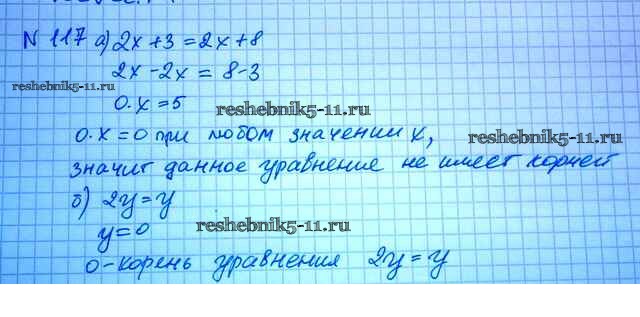 N 117 а) 2x+3=2x+8
2x-2x = 8-3
reshebnik5-11.ru
0·x=5
reshebnik5-11.ru
0·x=0 при любом значении x,
reshebnik5-11.ru
значит данное уравнение не имеет корней
б) 2y=y
y=0
reshebnik5-11.ru
0-корень уравнения 2y=y